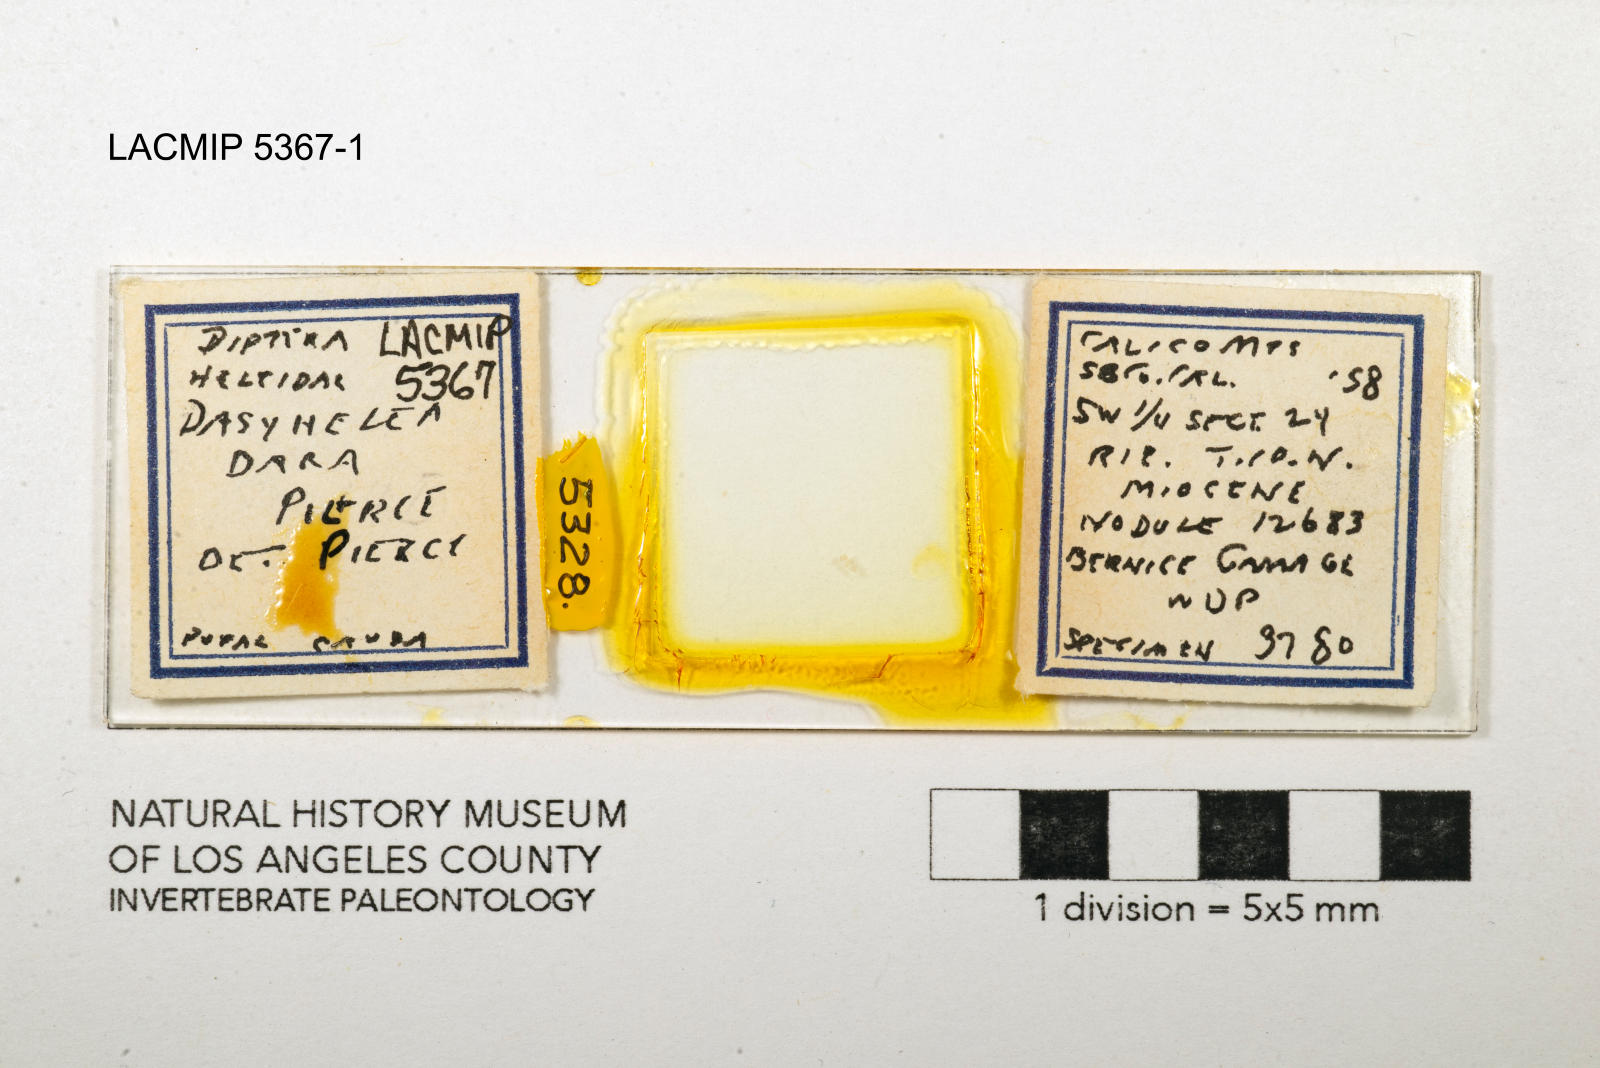 LACMIP 5367-1
DIPTERA LACMIP
HELEIDAE 5367
DASYHELEA
DARA
PIERCE
DET. PIERCE
PUPAL CAUDA
5328.
CALICO MTS
SB CO. CAL. '58
SW 1/4 SECT 24
R1E. T.10.N.
MIOCENE
NODULE 12683
BERNICE GAMAGE
WDP
SPECIMEN 3780
NATURAL HISTORY MUSEUM
OF LOS ANGELES COUNTY
INVERTEBRATE PALEONTOLOGY
1 division = 5x5 mm